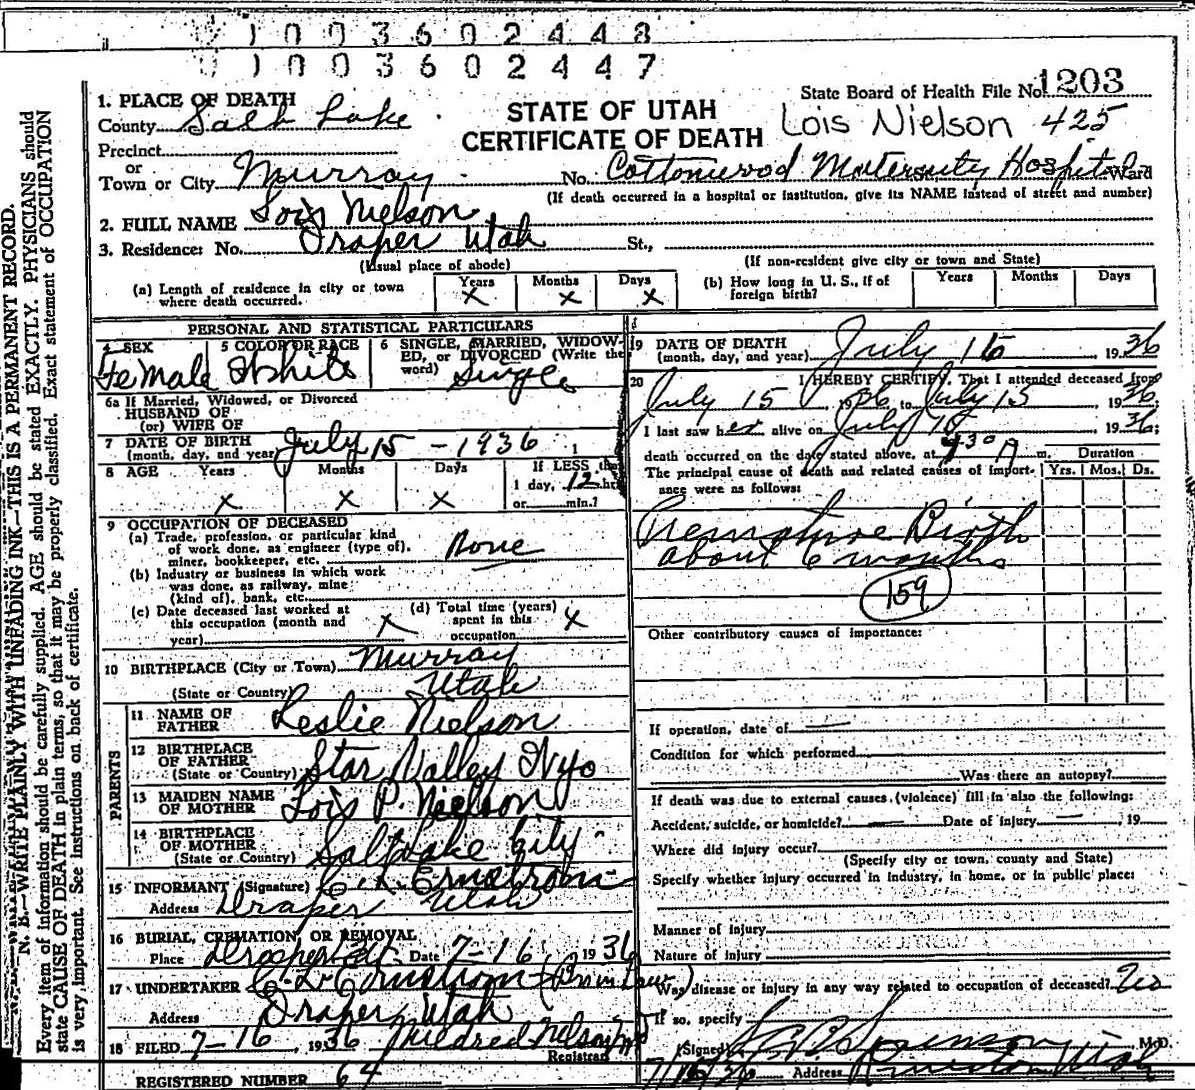 1 0 0 3 6 0 2 4 4 8
1 0 0 3 6 0 2 4 4 7
N. B.—WRITE PLAINLY WITH UNFADING INK—THIS IS A PERMANENT RECORD.
Every item of information should be carefully supplied. AGE should be stated EXACTLY. PHYSICIANS should
state CAUSE OF DEATH in plain terms, so that it may be properly classified. Exact statement of OCCUPATION
is very important. See instructions on back of certificate.
State Board of Health File No. 1203
STATE OF UTAH
CERTIFICATE OF DEATH
Lois Nielson 425
1. PLACE OF DEATH
County Salt Lake
Precinct
or
Town or City Murray No. Cottonwood Maternity Hospital Ward
(If death occurred in a hospital or institution, give its NAME instead of street and number)
2. FULL NAME Lois Nielson
3. Residence: No. Draper Utah St.,
(Usual place of abode) (If non-resident give city or town and State)
(a) Length of residence in city or town where death occurred. Years x Months x Days x
(b) How long in U. S., if of foreign birth? Years Months Days
PERSONAL AND STATISTICAL PARTICULARS
4 SEX Female
5 COLOR OR RACE White
6 SINGLE, MARRIED, WIDOWED, or DIVORCED (Write the word) Single
6a If Married, Widowed, or Divorced
HUSBAND OF
(or) WIFE OF
7 DATE OF BIRTH
(month, day, and year) July 15 - 1936
8 AGE Years x Months x Days x If LESS than 1 day, 12 hrs. or min.?
9 OCCUPATION OF DECEASED
(a) Trade, profession, or particular kind
of work done, as engineer (type of),
miner, bookkeeper, etc. None
(b) Industry or business in which work
was done, as railway, mine
(kind of), bank, etc.
(c) Date deceased last worked at
this occupation (month and
year) x
(d) Total time (years)
spent in this
occupation x
10 BIRTHPLACE (City or Town) Murray
(State or Country) Utah
PARENTS
11 NAME OF FATHER Leslie Nielson
12 BIRTHPLACE OF FATHER
(State or Country) Star Valley Wyo
13 MAIDEN NAME OF MOTHER Lois P. Nielson
14 BIRTHPLACE OF MOTHER
(State or Country) Salt Lake City
15 INFORMANT (Signature) C. L. Ernstrom
Address Draper Utah
16 BURIAL, CREMATION, OR REMOVAL
Place Draper Ut. Date 7-16 1936
17 UNDERTAKER
Address Draper Utah
18 FILED 7-16, 1936 Mildred Nelson
Registrar
REGISTERED NUMBER 64
19 DATE OF DEATH
(month, day, and year) July 16 1936
20 I HEREBY CERTIFY, That I attended deceased from
July 15 1936 to July 15 1936;
I last saw her alive on July 1936;
death occurred on the date stated above, at 430 A m.
The principal cause of death and related causes of importance were as follows:
Duration
Yrs. Mos. Ds.
Premature Birth
about 6 months
159
Other contributory causes of importance:
If operation, date of —
Condition for which performed
Was there an autopsy?
If death was due to external causes (violence) fill in also the following:
Accident, suicide, or homicide? — Date of injury — 19
Where did injury occur?
(Specify city or town, county and State)
Specify whether injury occurred in industry, in home, or in public place:
Manner of injury
Nature of injury
Was disease or injury in any way related to occupation of deceased? No
If so, specify
(Signed) M.D.
Address Utah